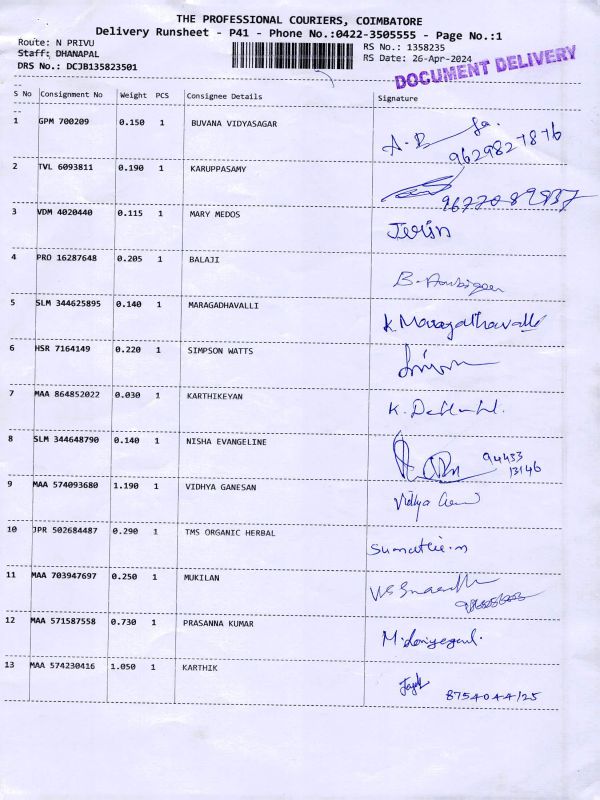 THE PROFESSIONAL COURIERS, COIMBATORE
Delivery Runsheet - P41 - Phone No.:0422-3505555 - Page No.:1
Route: N PRIVU
RS No.: 1358235
Staff: DHANAPAL
RS Date: 26-Apr-2024
DRS No.: DCJB135823501
DOCUMENT DELIVERY
S No Consignment No Weight PCS Consignee Details Signature
1 GPM 700209 0.150 1 BUVANA VIDYASAGAR A.B
9629827876
2 TVL 6093811 0.190 1 KARUPPASAMY
9677089837
3 VDM 4020440 0.115 1 MARY MEDOS Jerin
4 PRO 16287648 0.205 1 BALAJI B.
5 SLM 344625895 0.140 1 MARAGADHAVALLI K. Maragathavalli
6 HSR 7164149 0.220 1 SIMPSON WATTS
7 MAA 864852022 0.030 1 KARTHIKEYAN K.
8 SLM 344648790 0.140 1 NISHA EVANGELINE 94433
13146
9 MAA 574093680 1.190 1 VIDHYA GANESAN Vidhya
10 JPR 502684487 0.290 1 TMS ORGANIC HERBAL Sumathi.m
11 MAA 703947697 0.250 1 MUKILAN
12 MAA 571587558 0.730 1 PRASANNA KUMAR M.
13 MAA 574230416 1.050 1 KARTHIK
8754044125